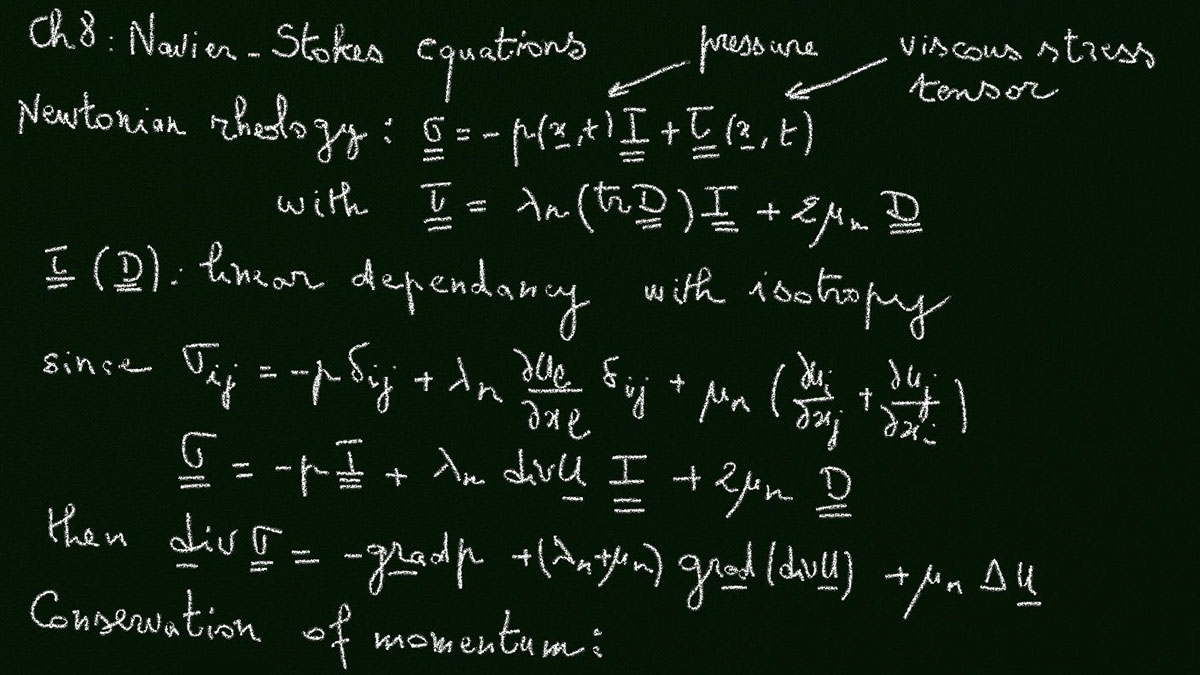 Ch 8: Navier-Stokes equations pressure viscous stress tensor
Newtonian rheology: σ = -p(x,t) I + τ(x,t)
with τ = λn(tr D) I + 2μn D
τ (D): linear dependancy with isotropy
since σij = -p δij + λn ∂Ul/∂xl δij + μn (∂ui/∂xj + ∂uj/∂xi)
σ = -p I + λn div U I + 2μn D
then div σ = -grad p + (λn+μn) grad (div U) + μn Δ U
Conservation of momentum: